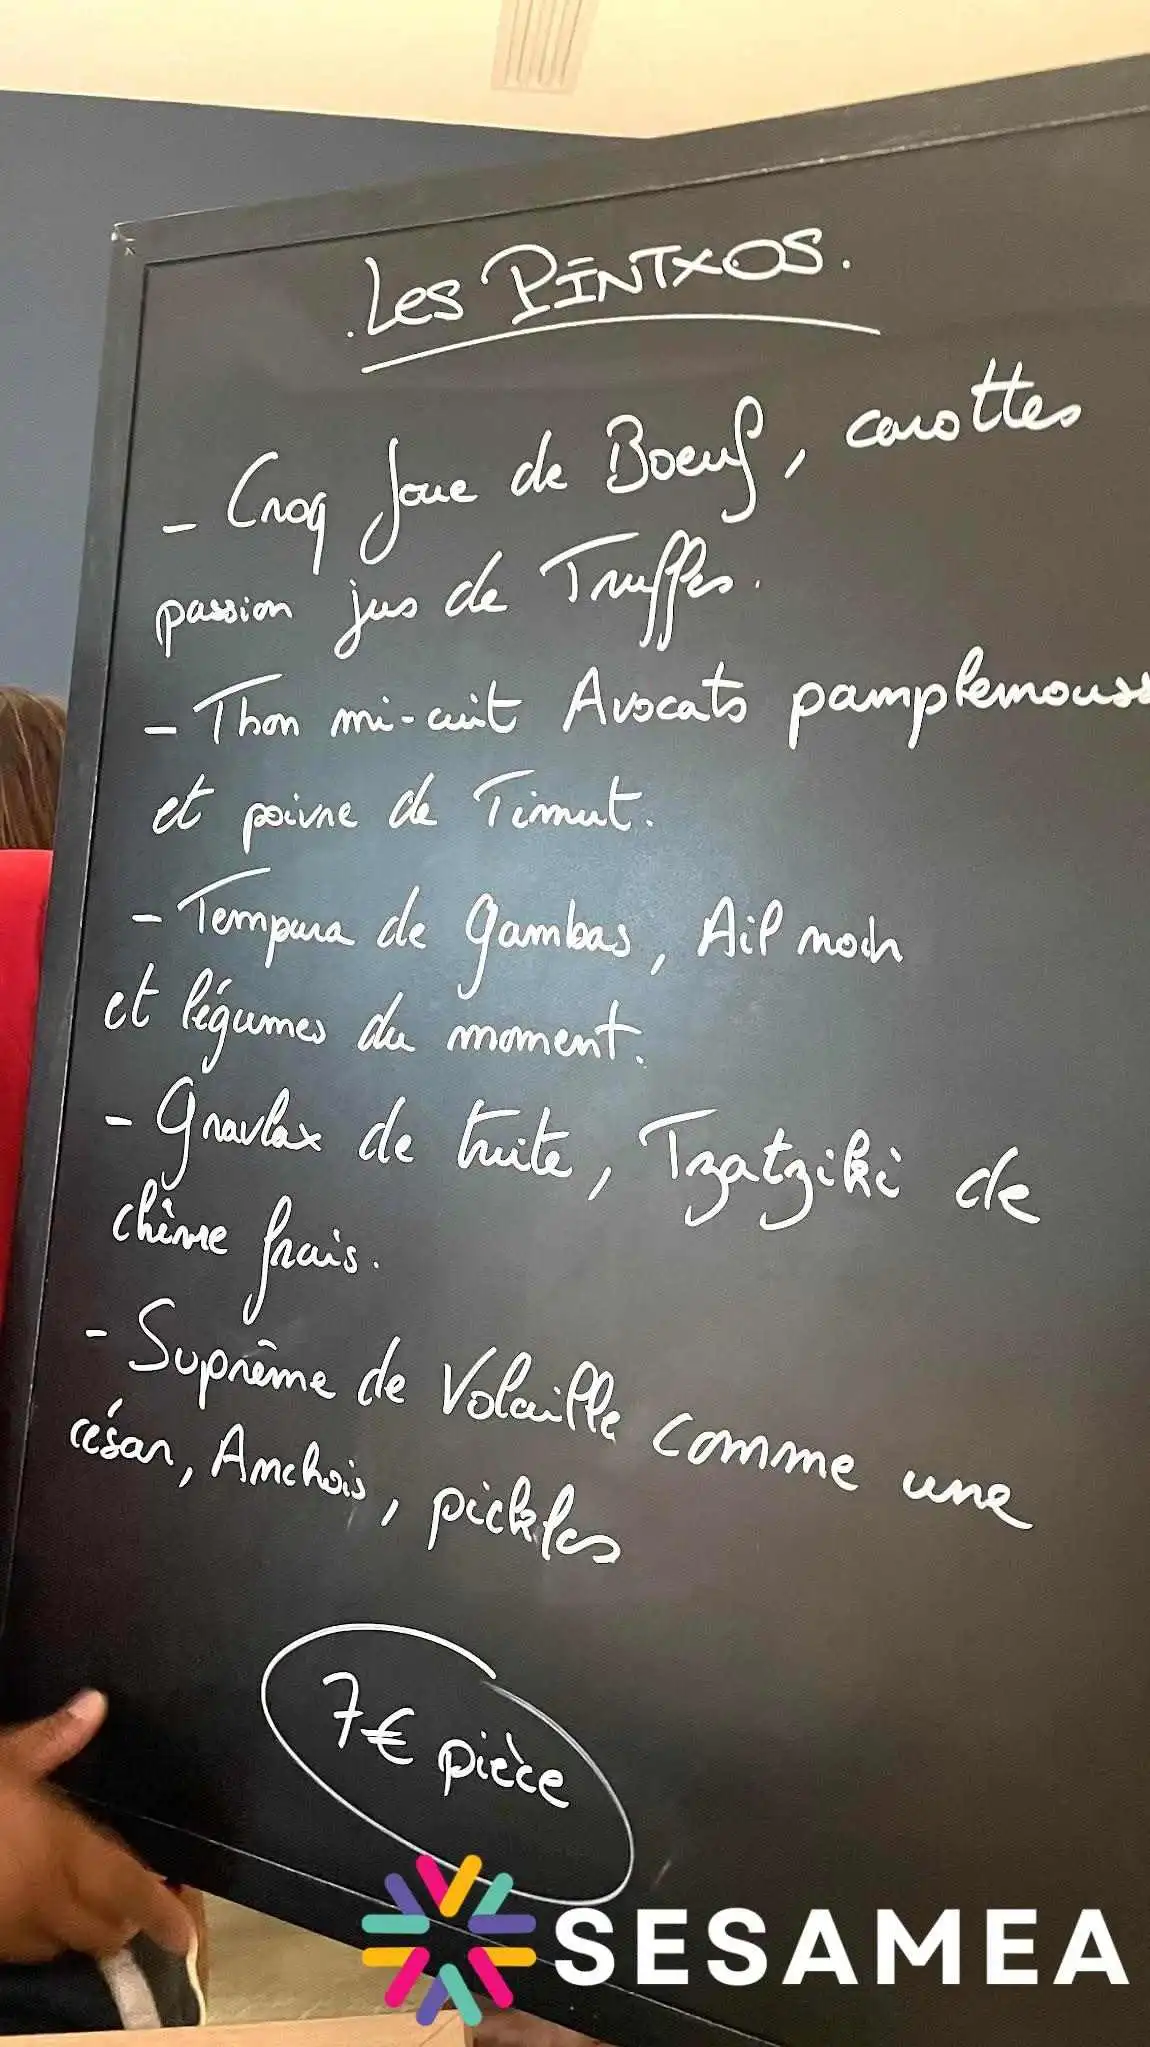 . Les PINTXOS.
- Croq Joue de Boeuf, carottes
passion jus de Truffes.
- Thon mi-cuit Avocats pamplemouss
et poivre de Timut.
- Tempura de gambas, Ail noir
et légumes du moment.
- Gravlax de truite, Tzatziki de
chèvre frais.
- Suprême de Volaille comme une
césar, Anchois, pickles
7€ pièce
SESAMEA